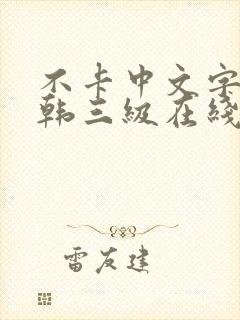 不卡中文字
韩三级在线
雷友建